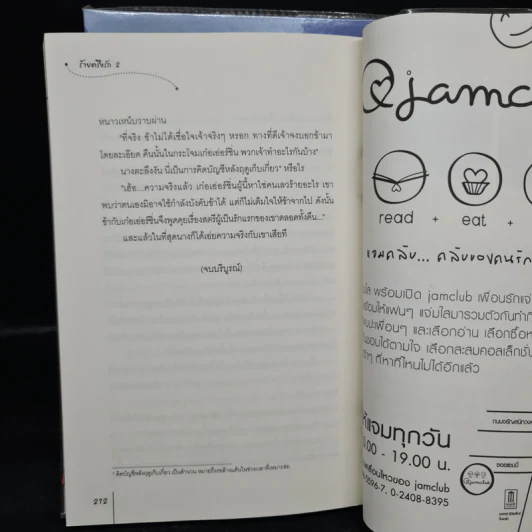 ร้ายตรึงรัก 2
หนาวเหน็บวาบผ่าน
"ที่จริง ข้าไม่ได้เชื่อใจเจ้าจริงๆ หรอก ทางที่ดีเจ้าจงบอกข้ามา
โดยละเอียด คืนนั้นในกระโจมเก๋อเอ่อร์ชิ่น พวกเจ้าทำอะไรกันบ้าง"
นางตะลึงงัน นี่เป็นการคิดบัญชีหลังฤดูเก็บเกี่ยว¹ หรือไร
"เฮ้อ...ความจริงแล้ว เก๋อเอ่อร์ชิ่นผู้นี้หาใช่คนเลวร้ายอะไร เขา
พบว่าตนเองมิอาจใช้กำลังบังคับข้าได้ แต่ก็ไม่เต็มใจให้ข้าจากไป ดังนั้น
ข้ากับเก๋อเอ่อร์ชิ่นจึงพูดคุยเรื่องสตรีผู้เป็นรักแรกของเขาตลอดทั้งคืน..."
และแล้วในที่สุดนางก็ได้เอ่ยความจริงกับเขาเสียที
(จบบริบูรณ์)
¹ คิดบัญชีหลังฤดูเก็บเกี่ยว เป็นสำนวน
212
jamcl
read + eat +
แจมคลับ... คลับของคนรัก
ใส พร้อมเปิด jamclub เพื่อนรักแจ่
ร้อมให้แฟนๆ แจ่มใสมารวมตัวกันทำกิ
และเลือกอ่าน เลือกซื้อห
ชอบได้ตามใจ เลือกสะสมคอลเล็กชั่
ที่หาที่ไหนไม่ได้อีกแล้ว
แจมทุกวัน
.00 - 19.00 น.
เคลื่อนไหวของ jamclub
6596-7, 0-2408-8395
jamclub